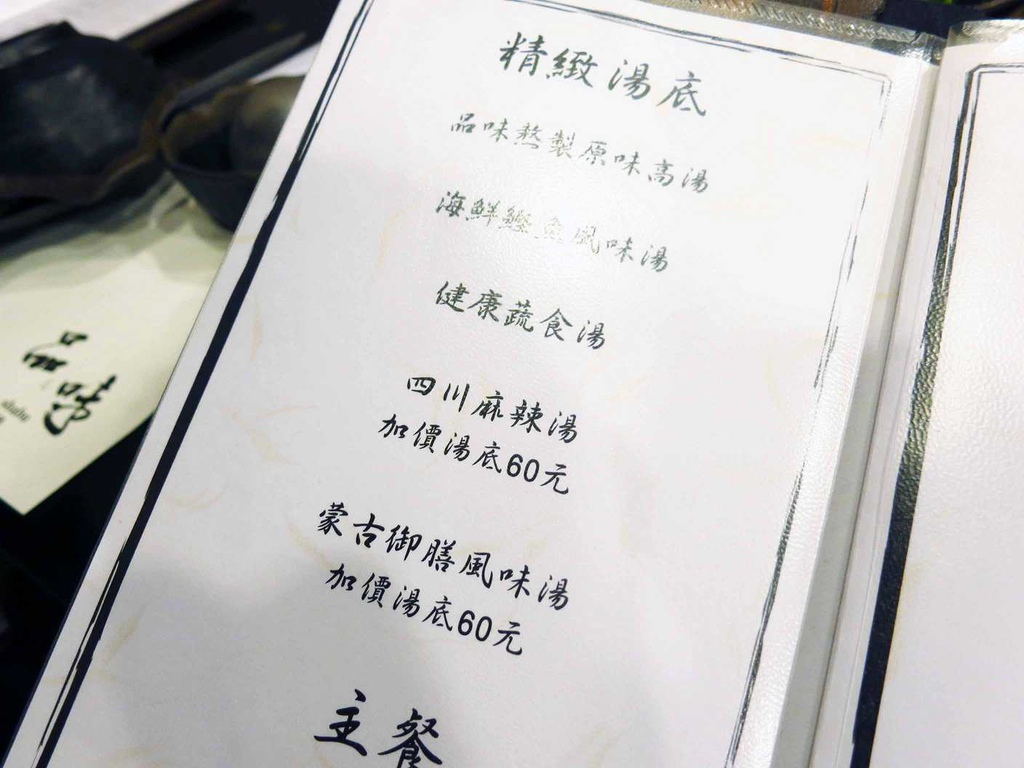 精緻湯底
品味熬製原味高湯
海鮮鰹魚風味湯
健康蔬食湯
四川麻辣湯
加價湯底60元
蒙古御膳風味湯
加價湯底60元
主餐
品味
shabu